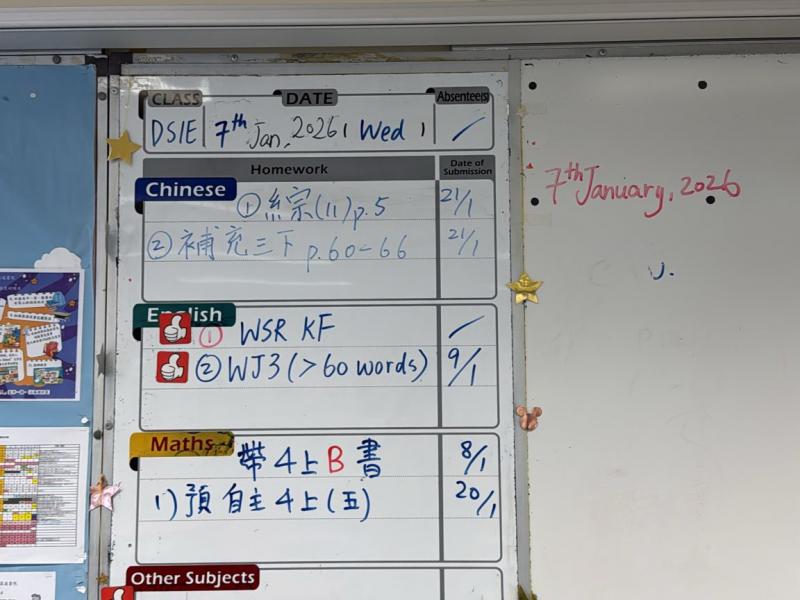 CLASS DATE Absentee(s)
DSIE 7th Jan, 2026 ( Wed )
Homework Date of Submission
Chinese
① 綜(11) p.5 21/1
② 補充三下 p.60-66 21/1
English
① WSR KF
② WJ3 (>60 words) 9/1
Maths
帶4上B書 8/1
1) 預自主4上(五) 20/1
Other Subjects
7th January, 2026